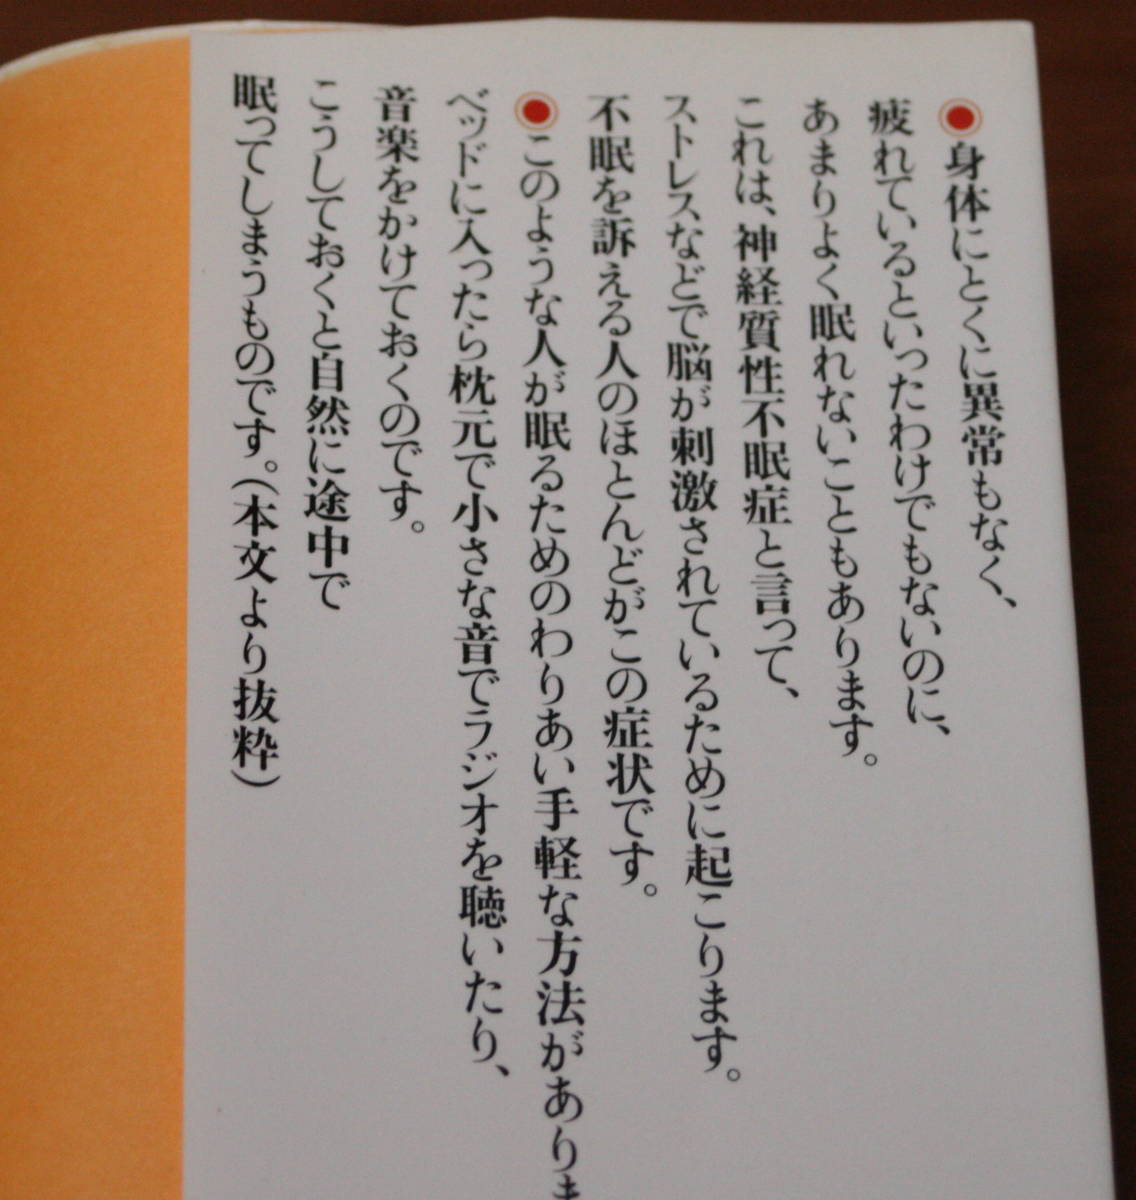 ◉身体にとくに異常もなく、
疲れているといったわけでもないのに、
あまりよく眠れないこともあります。
これは、神経質性不眠症と言って、
ストレスなどで脳が刺激されているために起こります。
不眠を訴える人のほとんどがこの症状です。
◉このような人が眠るためのわりあい手軽な方法がありま
ベッドに入ったら枕元で小さな音でラジオを聴いたり、
音楽をかけておくのです。
こうしておくと自然に途中で
眠ってしまうものです。(本文より抜粋)